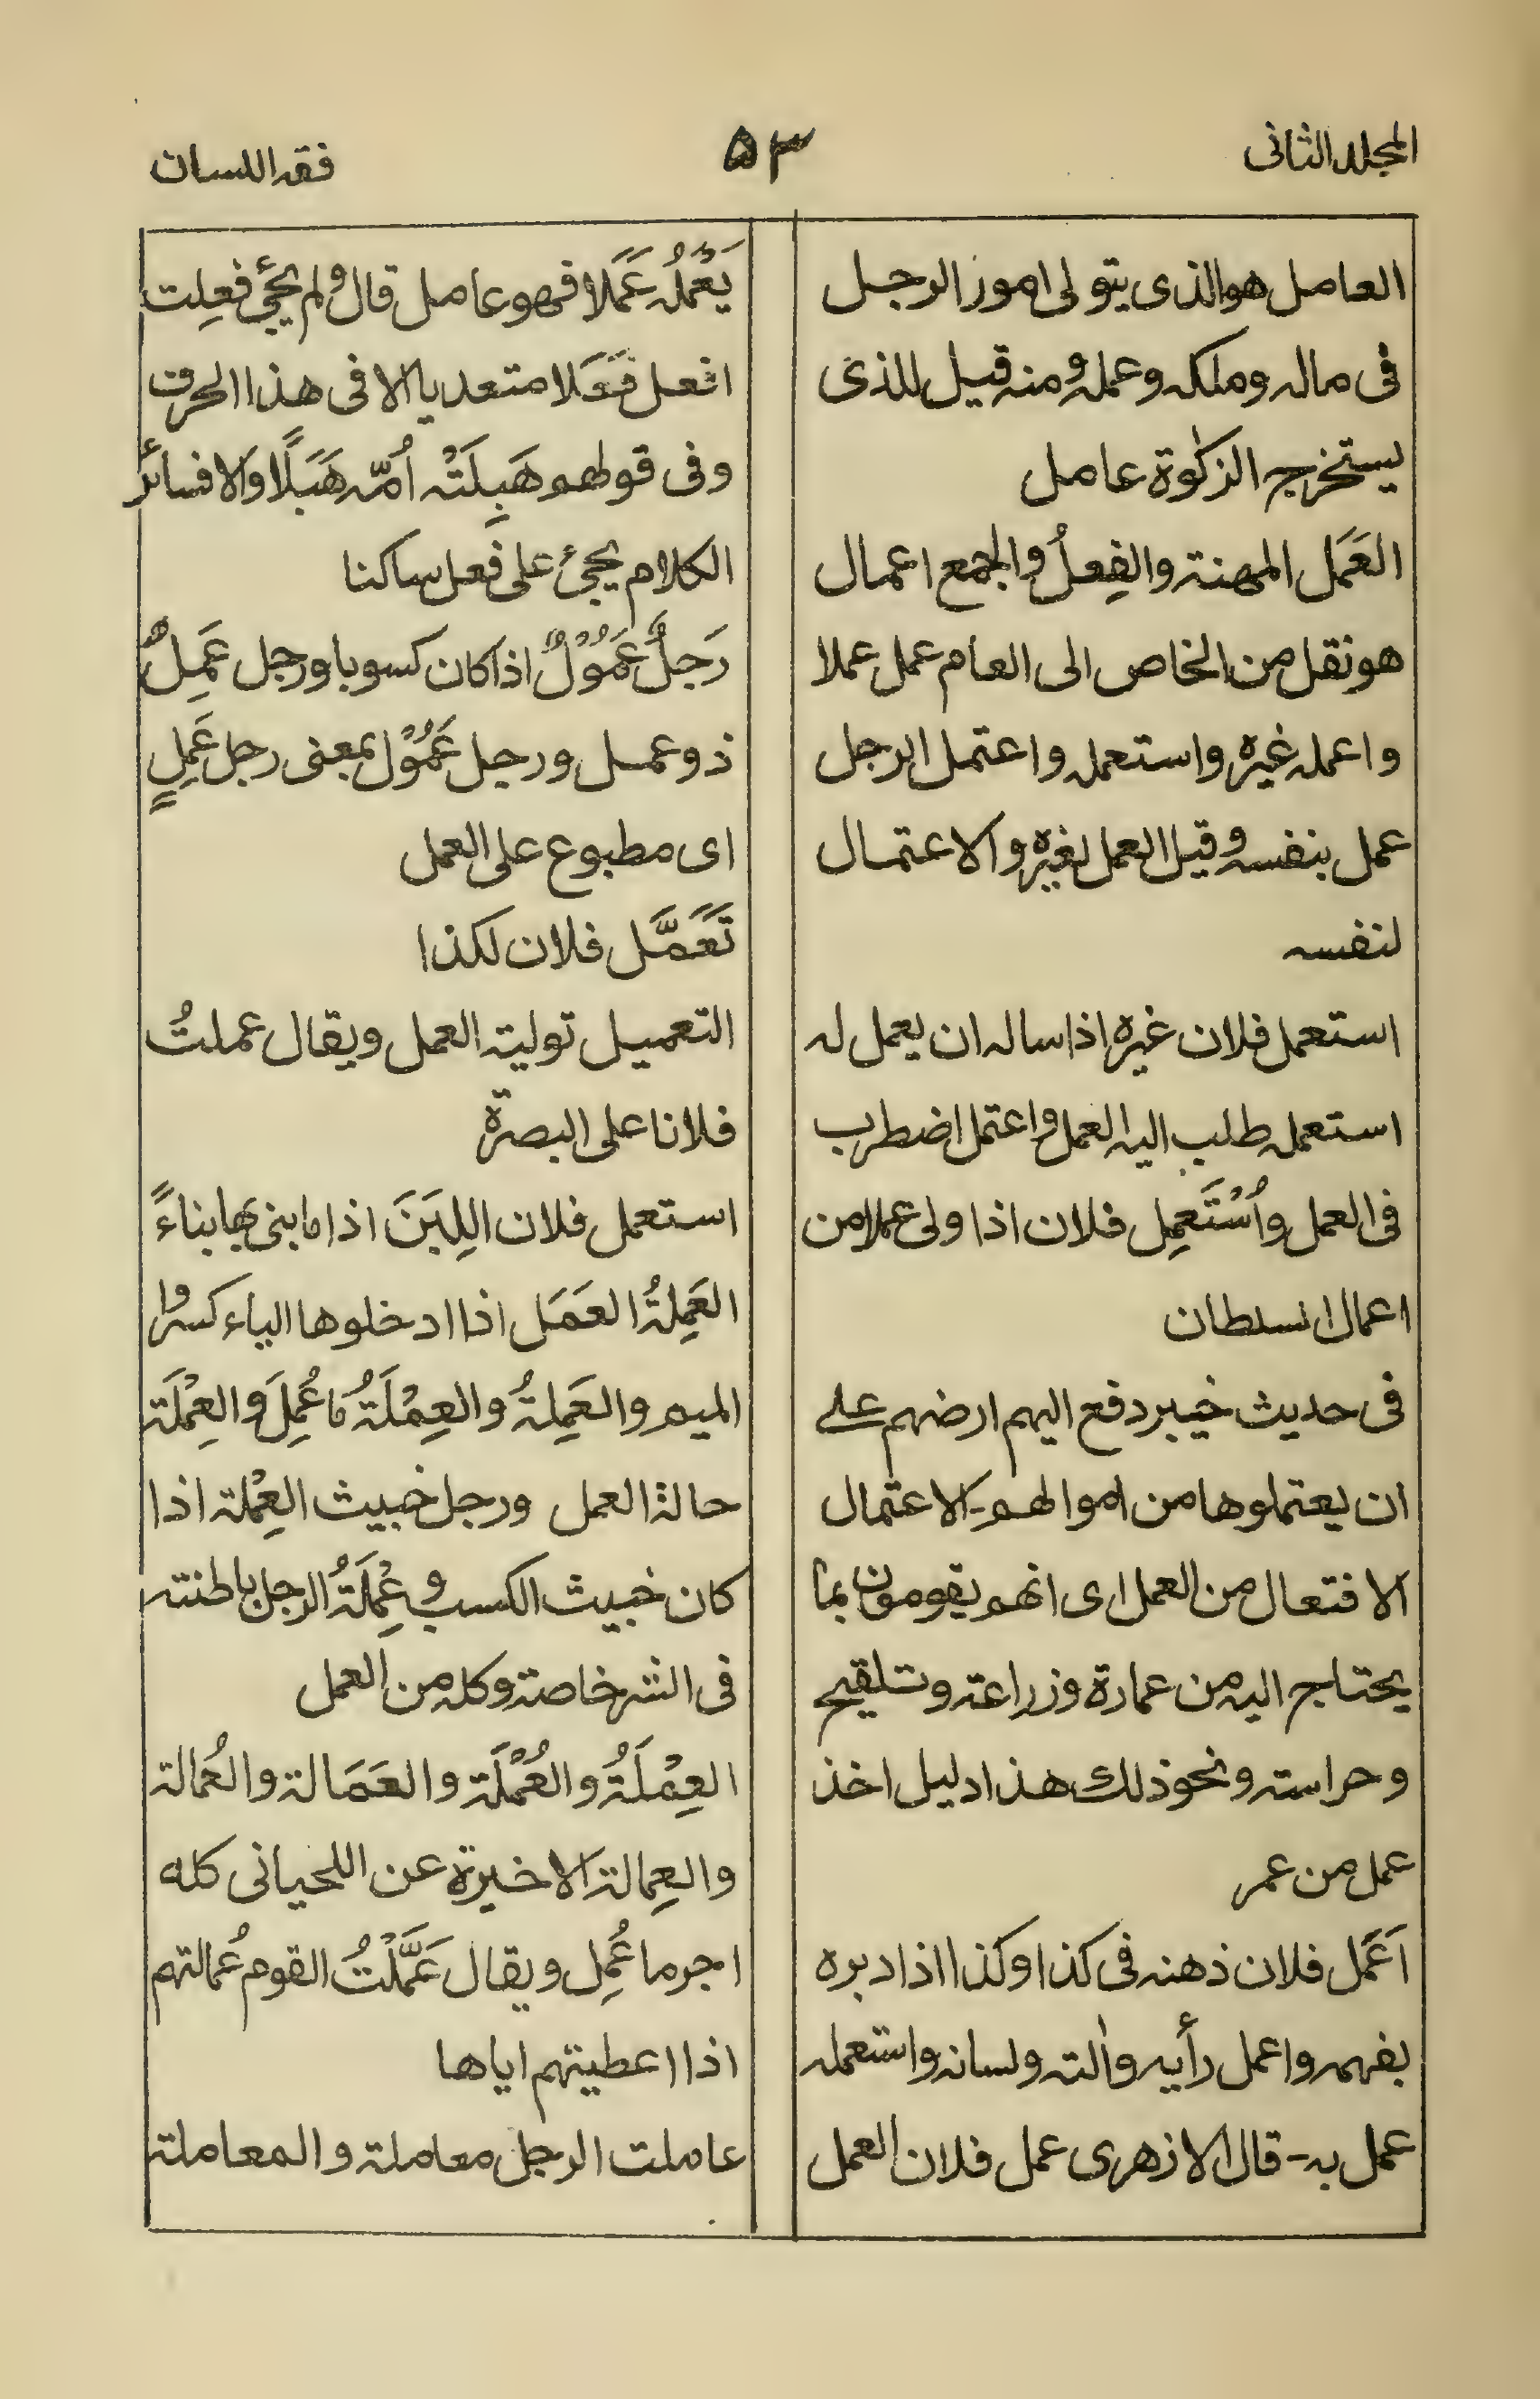 المجلد الثانى
۵۳
فقہ اللسان
العامل هو الذى يتولى امور الرجل
فى مالہ وملكہ وعملہ ومنہ قيل للذى
يستخرج الزكوٰة عامل
العَمَل المهنۃ والفِعلُ والجمع اعمال
هو نقل من الخاص الى العام عمل عملا
واعملہ غيره واستعملہ واعتمل الرجل
عمل بنفسہ وقيل العمل لغيره والاعتمال
لنفسہ
استعمل فلان غيره اذا سالہ ان يعمل لہ
استعملہ طلب اليہ العمل واعتمل اضطرب
فى العمل واُسْتُعمِل فلان اذا ولى عملا من
اعمال السلطان
فى حديث خيبر دفع اليهم ارضهم علے
ان يعتملوها من اموالهم۔ الاعتمال
الافتعال من العمل اى انهم يقومون بما
يحتاج اليہ من عمارة وزراعۃ وتلقيح
وحراسۃ ونحو ذلك هذا دليل اخذ
عمل من عمر
اَعَمَل فلان ذهنہ فى كذا وكذا اذا دبره
بفهمہ واعمل رأيہ واٰلتہ ولسانہ واستعملہ
عمل بہ۔ قال الازهرى عمل فلان العمل
يَعْمَلُہ عَمَلًا فهو عامل قال ولم يجئ فعِلت
افعل فَعَلا متعديا الا فى هذا الحرف
وفى قولهم هَبِلَتْہ اُمّہ هَبَلًا والا فسائر
الكلام يجئ على فعل ساكنا
رَجلٌ عَمُوْلٌ اذا كان كسوبا ورجل عَمِلٌ
ذو عمل ورجل عَمُوْل بمعنى رجل عَمِلٍ
اى مطبوع على العمل
تَعَمَّل فلان لكذا
التعميل توليۃ العمل ويقال عملتُ
فلانا على البصرة
استعمل فلان اللِبَنَ اذا ما بنى بها بناءً
العَمِلۃُ العَمَل اذا ادخلوها الياء كسروا
الميم والعَمِلۃُ والعِمْلَۃُ ما عُمِلَ والعِمْلَۃ
حالۃ العمل ورجل خبيث العِمْلۃ اذا
كان خبيث الكسب وعِمْلَۃُ الرجل باطنتہ
فى الشر خاصۃ وكلہ من العمل
العِمْلَۃُ والعُمْلَۃ والعَمَالۃ والعُمالۃ
والعِمالۃ الاخيرة عن اللحيانى كله
اجر ما عُمِل ويقال عَمَّلْتُ القوم عُمالتهم
اذا اعطيتهم اياها
عاملت الرجل معاملۃ والمعاملۃ